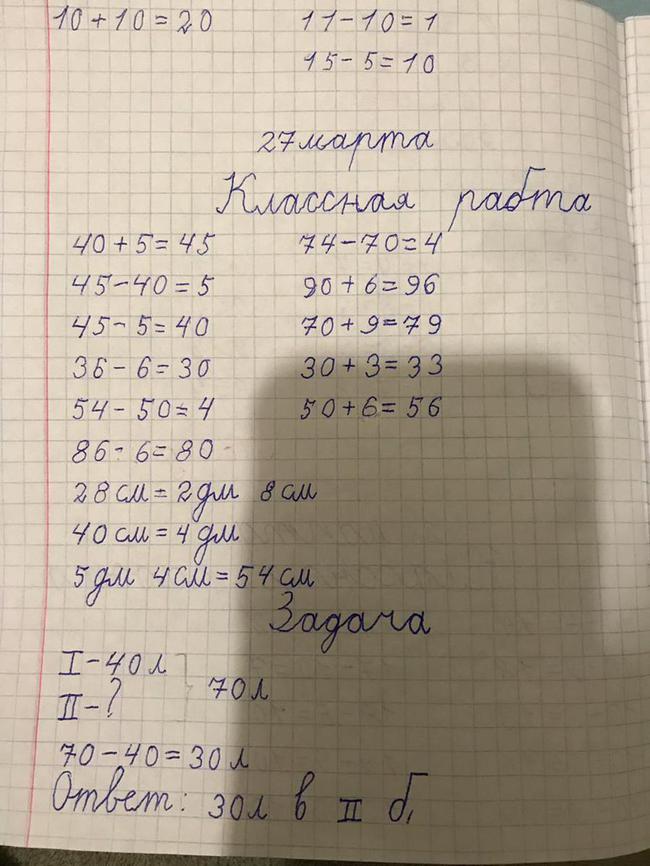 10+10=20 11-10=1
15-5=10
27марта
Классная рабта
40+5=45 74-70=4
45-40=5 90+6=96
45-5=40 70+9=79
36-6=30 30+3=33
54-50=4 50+6=56
86-6=80
28см=2дм 8см
40см=4дм
5дм 4см=54см
Задача
I-40л
II-? 70л
70-40=30л
Ответ: 30л в II б.